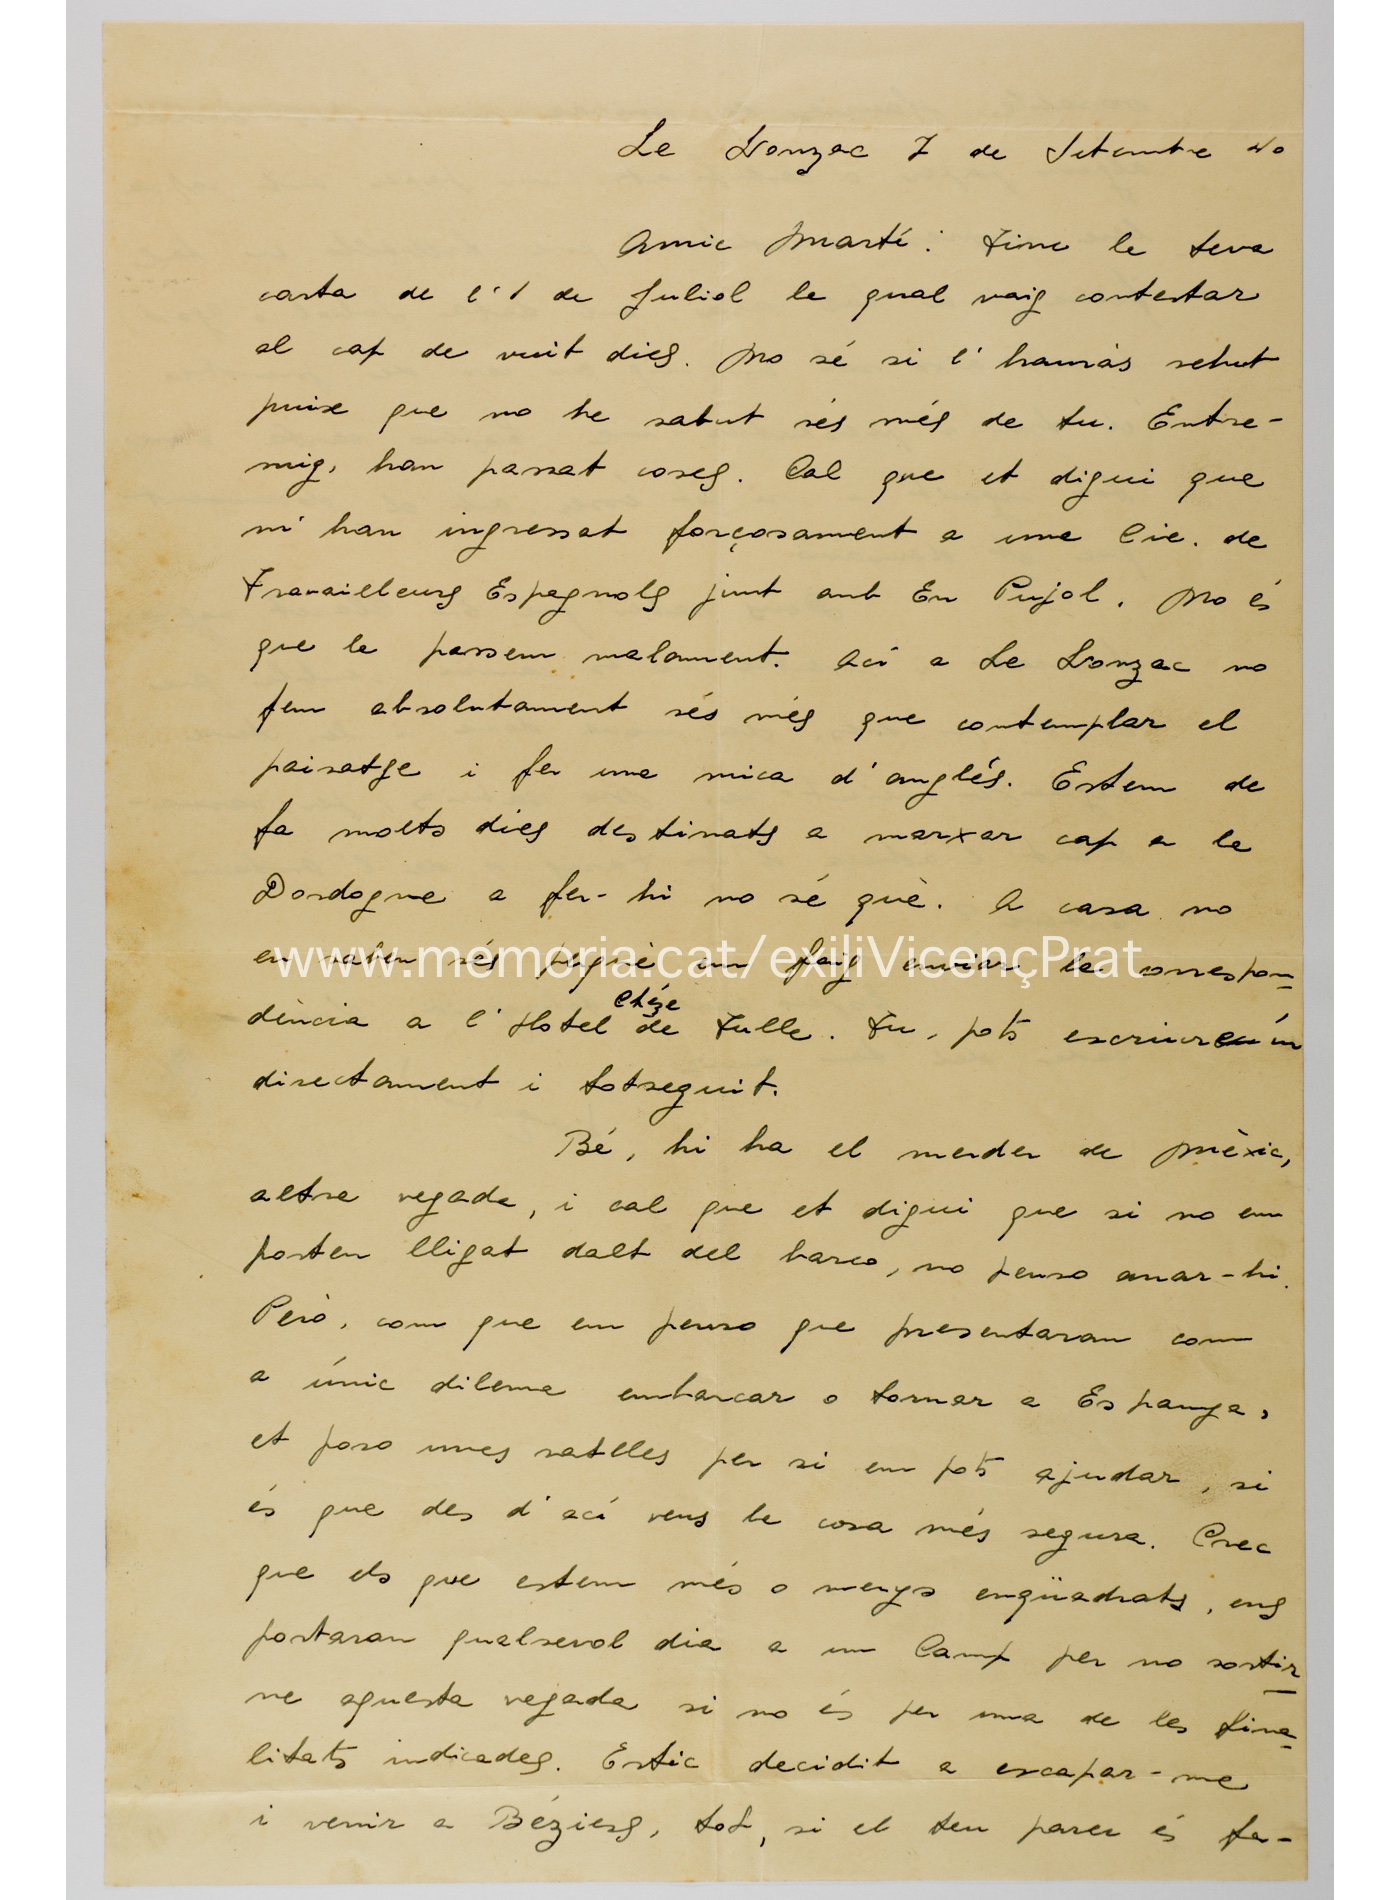 Le Lonzac 7 de Setembre 40
Amic Martí: Tinc la teva
carta de l'1 de Juliol la qual vaig contestar
al cap de vuit dies. No sé si l'hauràs rebut
puix que no he sabut rés més de tu. Entre-
mig, han passat coses. Cal que et digui que
m'han ingressat forçosament a una Cie. de
Travailleurs Espagnols junt amb En Pujol. No és
que la passem malament. Ací a Le Lonzac no
fem absolutament rés més que contemplar el
paisatge i fer una mica d'anglés. Estem de
fa molts dies destinats a marxar cap a la
Dordogne a fer-hi no sé què. A casa no
en saben rés perquè em faig enviar la correspon-
dència a l'Hotel Chéze de Tulle. Tu, pots escriure'm
directament i totseguit.
Bé, hi ha el merder de Mèxic,
altre vegada, i cal que et digui que si no em
porten lligat dalt del barco, no penso anar-hi.
Però, com que em penso que presentaran com
a únic dilema embarcar o tornar a Espanya,
et poso unes ratlles per si em pots ajudar, si
és que des d'ací veus la cosa més segura. Crec
que els que estem més o menys enqüadrats, ens
portaran qualsevol dia a un Camp per no sortir-
ne aquesta vegada si no és per una de les fina-
litats indicades. Estic decidit a escapar-me
i venir a Béziers, tot, si el teu parer és fa-
www.memoria.cat/exiliVicençPrat